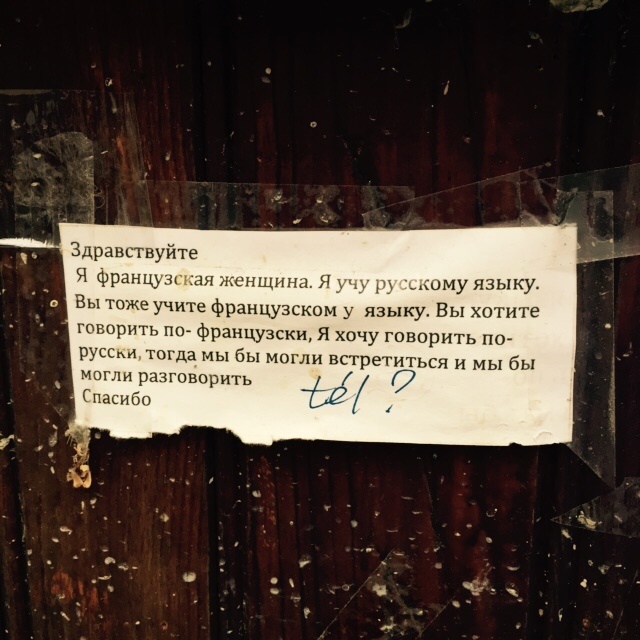 Здравствуйте
Я французская женщина. Я учу русскому языку.
Вы тоже учите французском у языку. Вы хотите
говорить по- французски, Я хочу говорить по-
русски, тогда мы бы могли встретиться и мы бы
могли разговорить
Спасибо
tél?